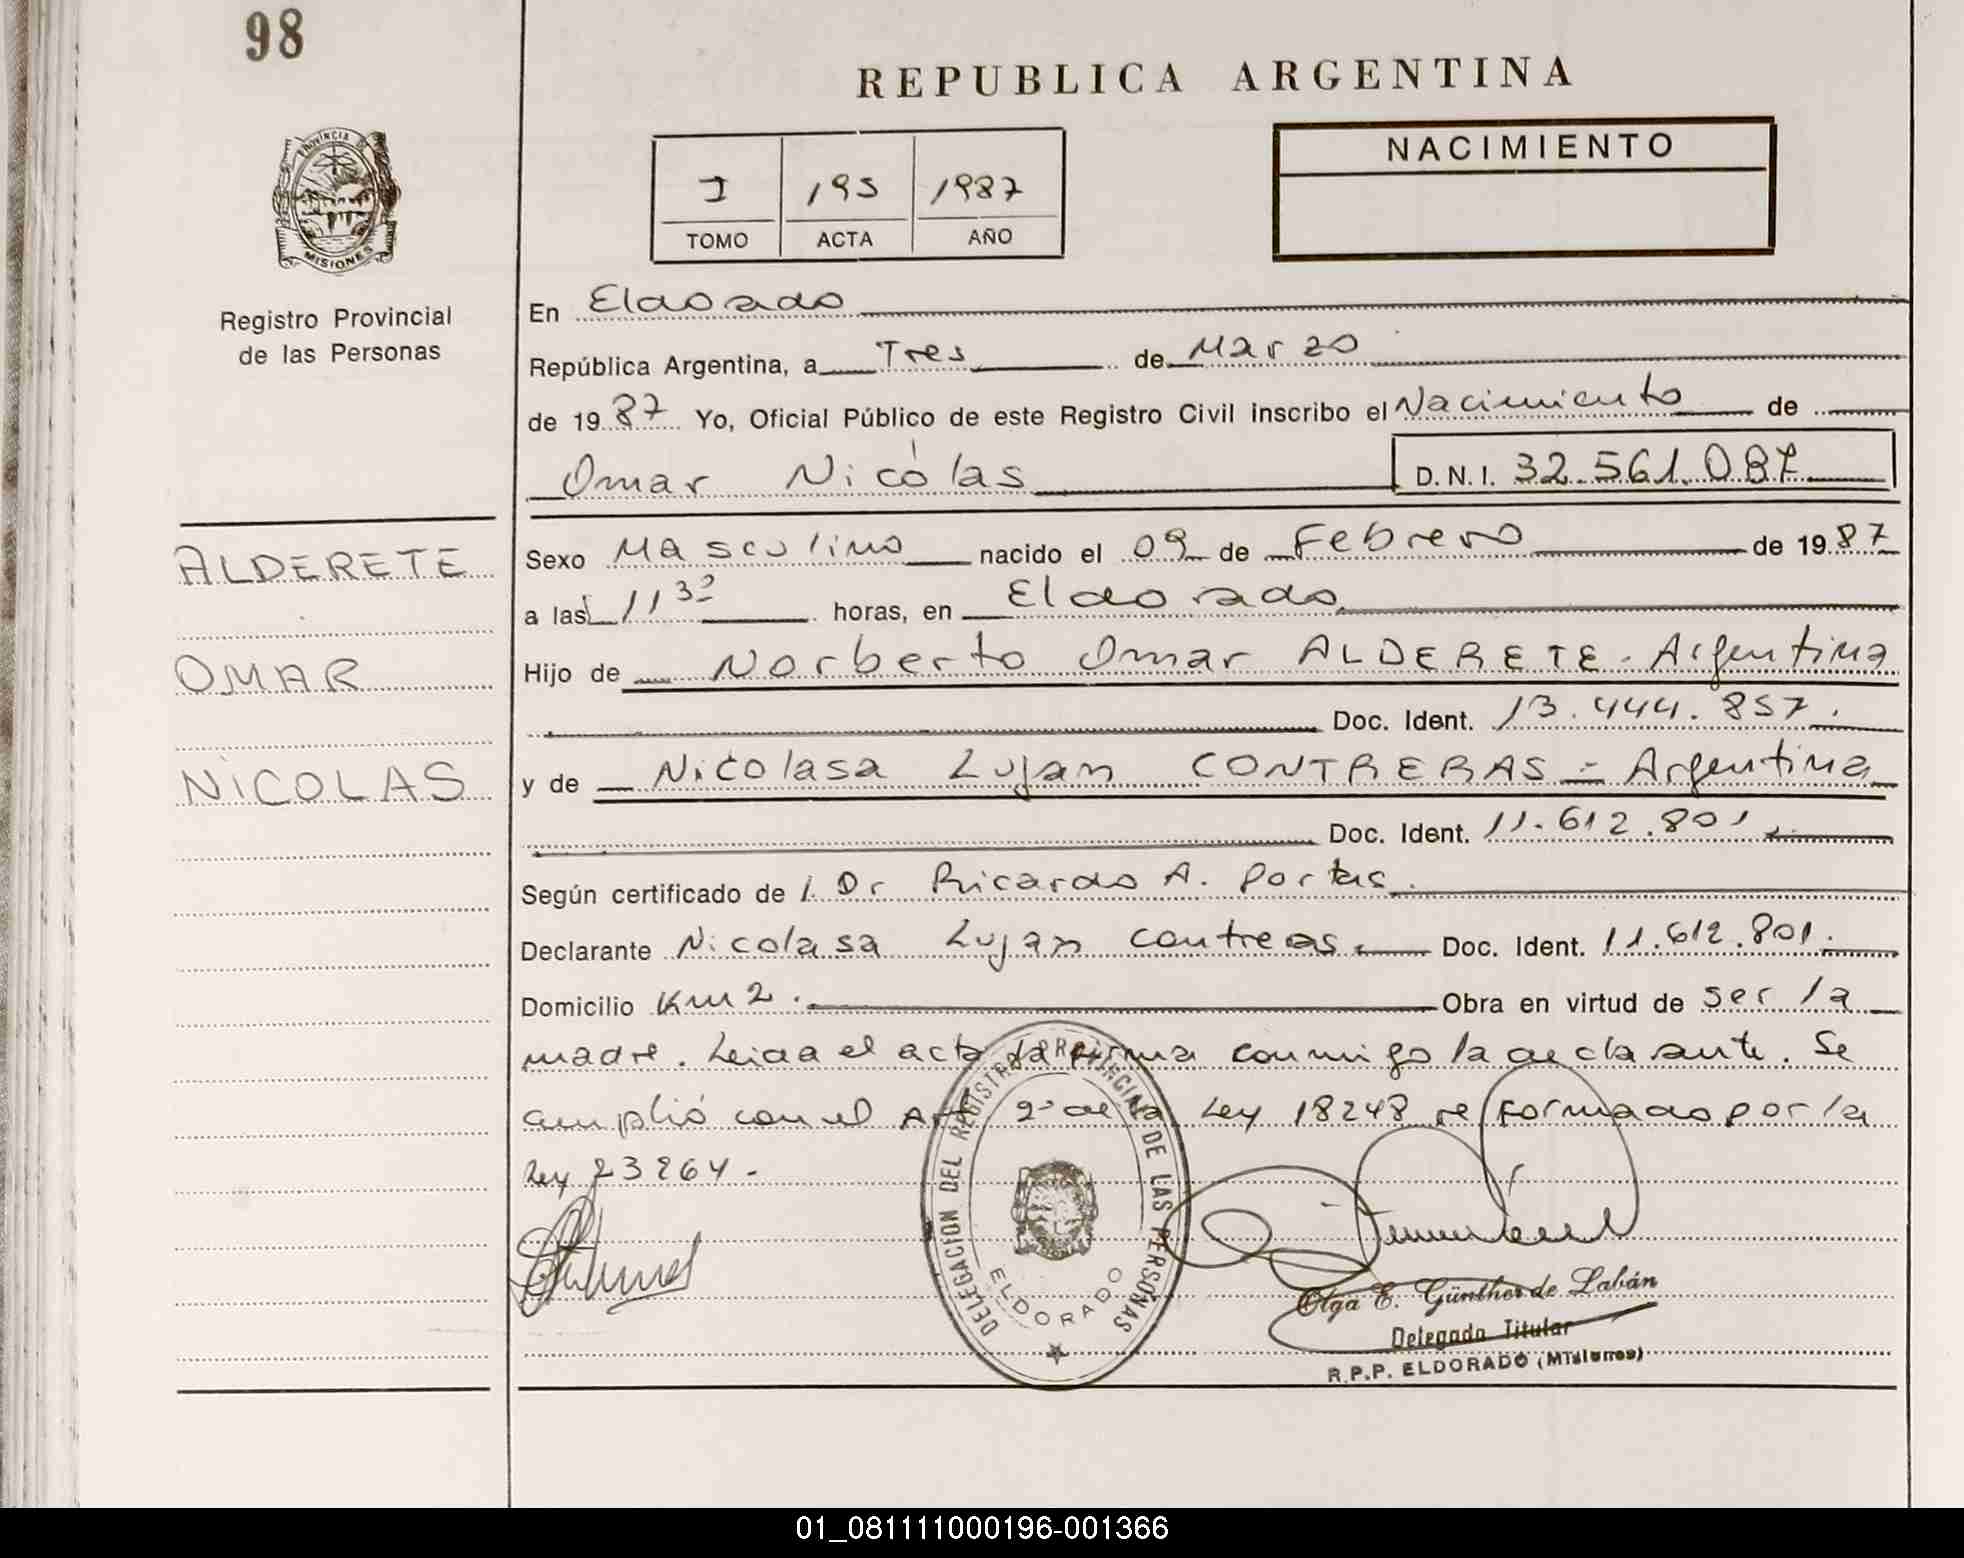 98
REPUBLICA ARGENTINA
PROVINCIA DE
MISIONES
Registro Provincial
de las Personas
I 195 1987
TOMO ACTA AÑO
NACIMIENTO
En Eldorado
República Argentina, a Tres de Marzo
de 1987 Yo, Oficial Público de este Registro Civil inscribo el Nacimiento de
Omar Nicolás D.N.I. 32.561.087
ALDERETE
OMAR
NICOLAS
Sexo Masculino nacido el 09 de Febrero de 1987
a las 11 30 horas, en Eldorado
Hijo de Norberto Omar ALDERETE - Argentina
Doc. Ident. 13.444.857.
y de Nicolasa Lujan CONTRERAS = Argentina
Doc. Ident. 11.612.801.
Según certificado de l. Dr Ricardo A. Portas.
Declarante Nicolasa Lujan Contreras. Doc. Ident. 11.612.801.
Domicilio Km 2. Obra en virtud de ser la
madre. Leida el acta la firma conmigo la declarante. Se
amplió con el Art 2º de la Ley 18248 reformado por la
Ley 23264-
DELEGACION DEL REGISTRO PROVINCIAL DE LAS PERSONAS
ELDORADO
Olga E. Günther de Labán
Delegada Titular
R.P.P. ELDORADO (Misiones)
01_081111000196-001366